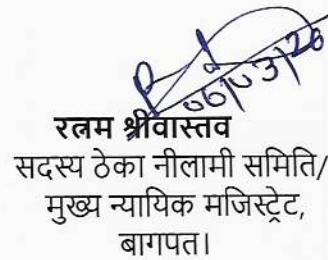 06/03/26
रत्नम श्रीवास्तव
सदस्य ठेका नीलामी समिति/
मुख्य न्यायिक मजिस्ट्रेट,
बागपत।